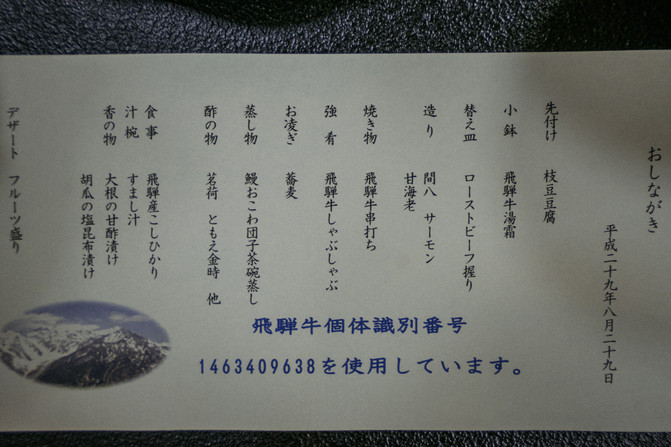 おしながき
平成二十九年八月二十九日
先付け 枝豆豆腐
小鉢 飛騨牛湯霜
替え皿 ローストビーフ握り
造り 間八 サーモン
甘海老
焼き物 飛騨牛串打ち
強肴 飛騨牛しゃぶしゃぶ
お凌ぎ 蕎麦
蒸し物 鰻おこわ団子茶碗蒸し
酢の物 茗荷 ともえ金時 他
食事 飛騨産こしひかり
汁椀 すまし汁
香の物 大根の甘酢漬け
胡瓜の塩昆布漬け
デザート フルーツ盛り
飛騨牛個体識別番号
1463409638を使用しています。